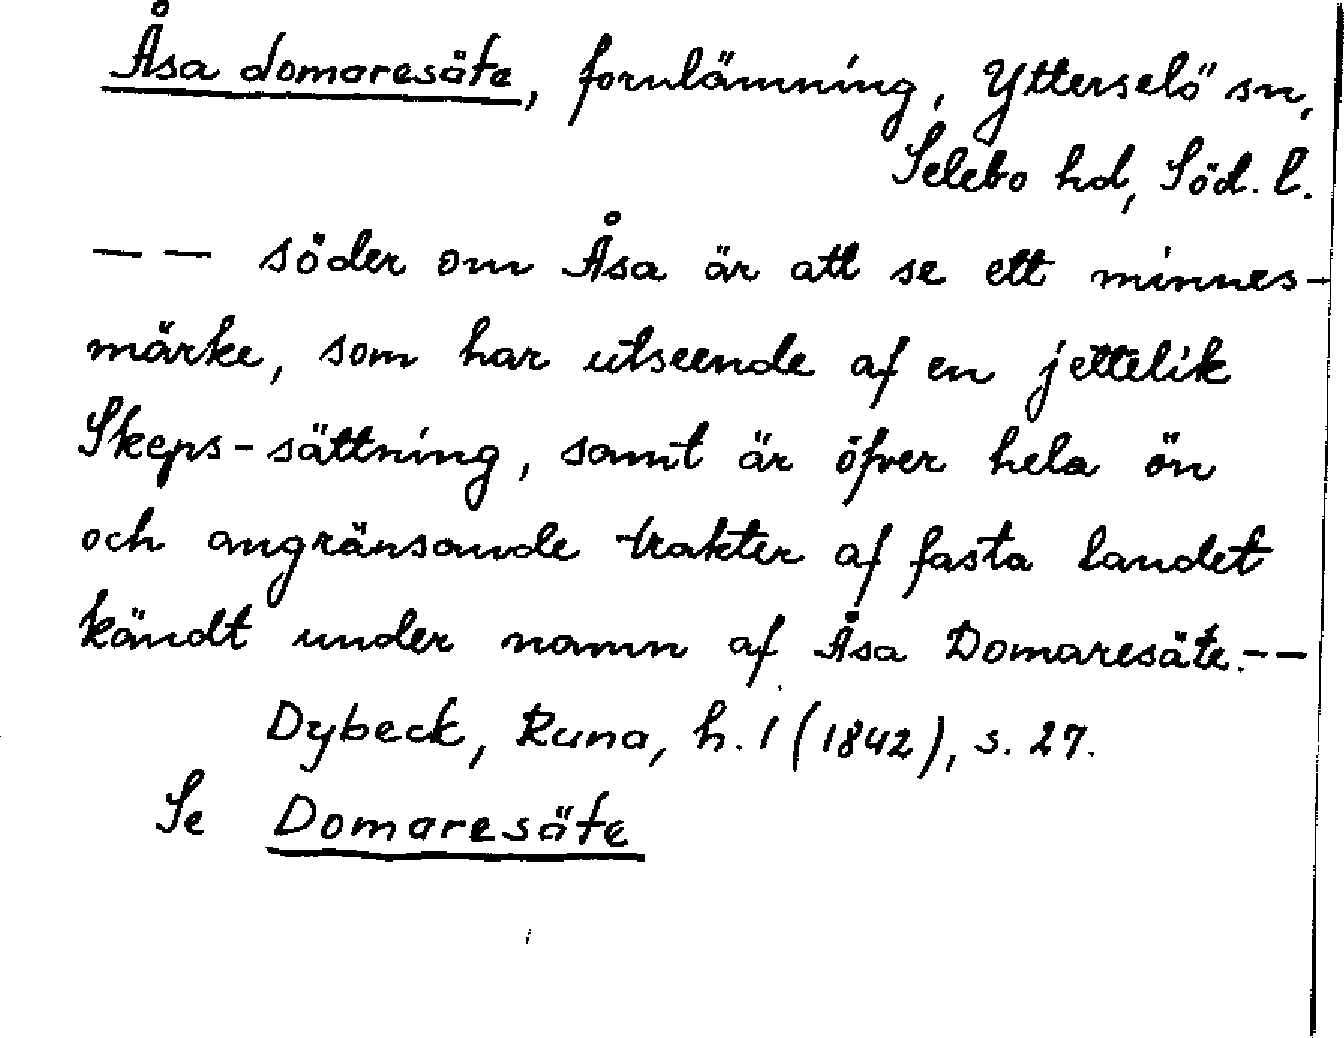 Åsa domaresäte, fornlämning, Ytterselö sn,
Selebo hd, Söd. l.
— — söder om Åsa är att se ett minnes-
märke, som har utseende af en jettelik
Skeps-sättning, samt är öfver hela ön
och angränsande trakter af fasta landet
kändt under namn af Åsa Domaresäte.--
Dybeck, Runa, h. 1 (1842), s. 27.
Se Domaresäte